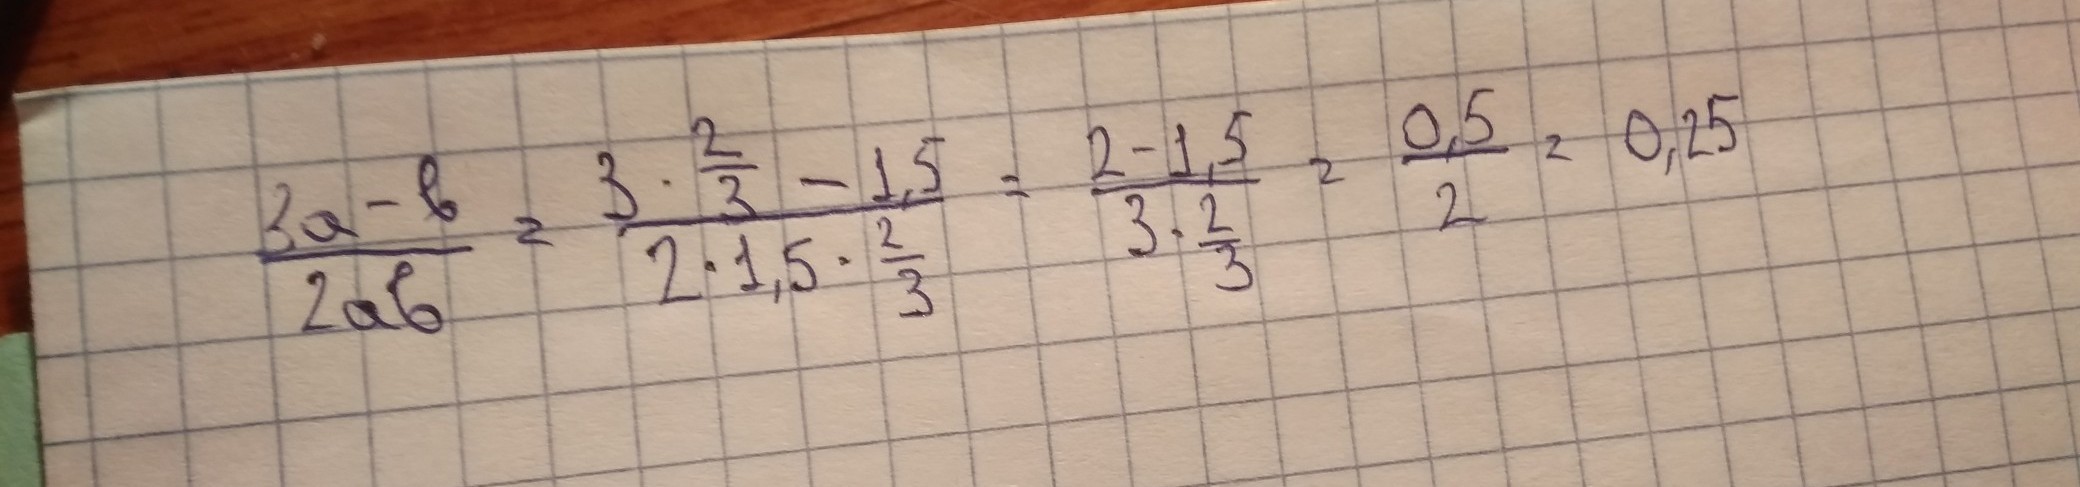 (3a - b)/(2ab) = (3 · 2/3 - 1,5)/(2 · 1,5 · 2/3) = (2 - 1,5)/(3 · 2/3) = 0,5/2 = 0,25